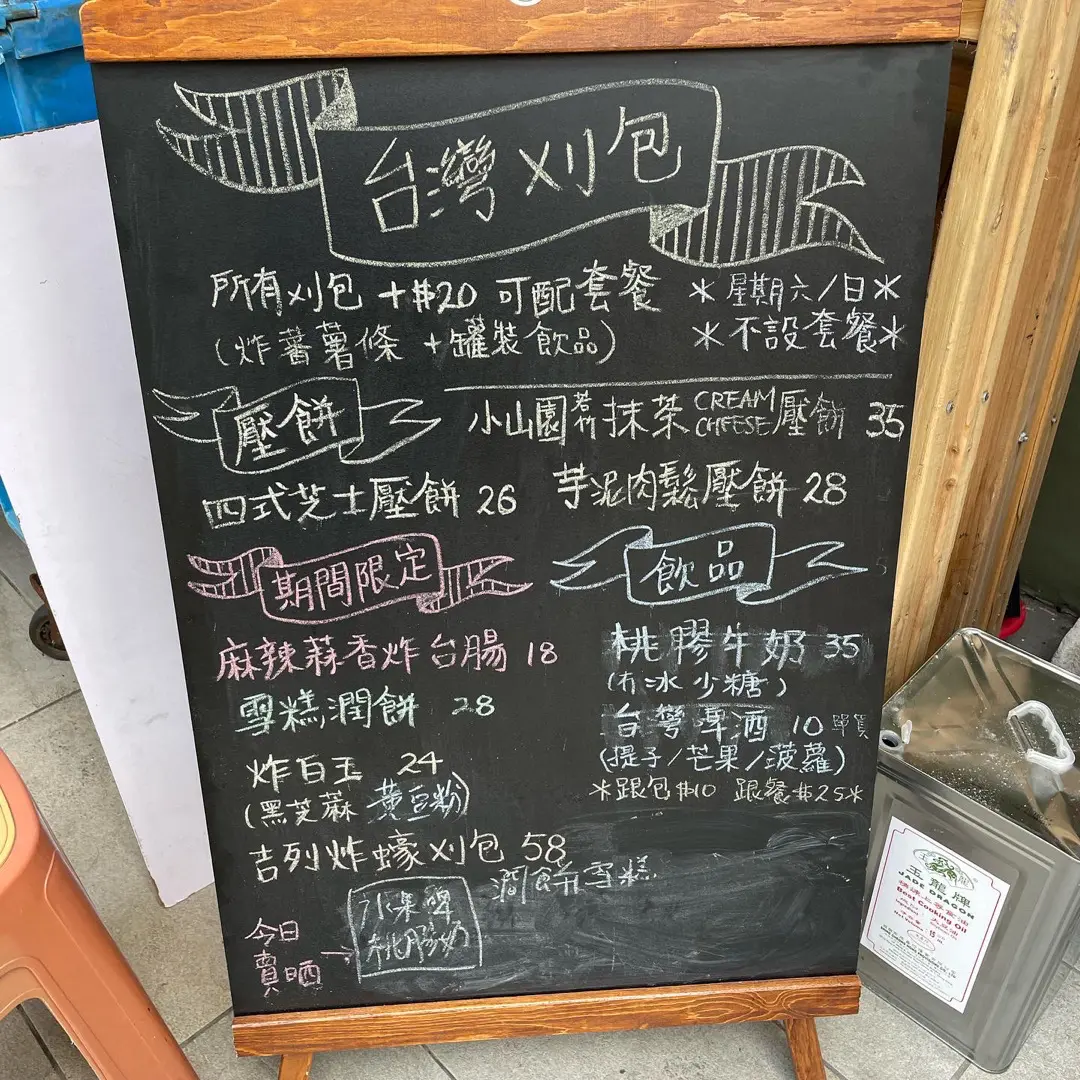 台灣刈包
所有刈包 +$20 可配套餐
(炸蕃薯條 +罐裝飲品)
*星期六/日*
*不設套餐*
壓餅
小山園若竹抹茶 CREAM CHEESE 壓餅 35
四式芝士壓餅 26
芋泥肉鬆壓餅 28
期間限定
麻辣蒜香炸台腸 18
雪糕潤餅 28
炸白玉 24
(黑芝麻 黄豆粉)
吉列炸蠔刈包 58
潤餅雪糕
今日
賣晒
水果啤
桃膠奶
飲品
桃膠牛奶 35
(冇冰少糖)
台灣啤酒 10 單買
(提子/芒果/菠蘿)
*跟包$10 跟餐$25*
玉龍牌
JADE DRAGON
Best Cooking Oil